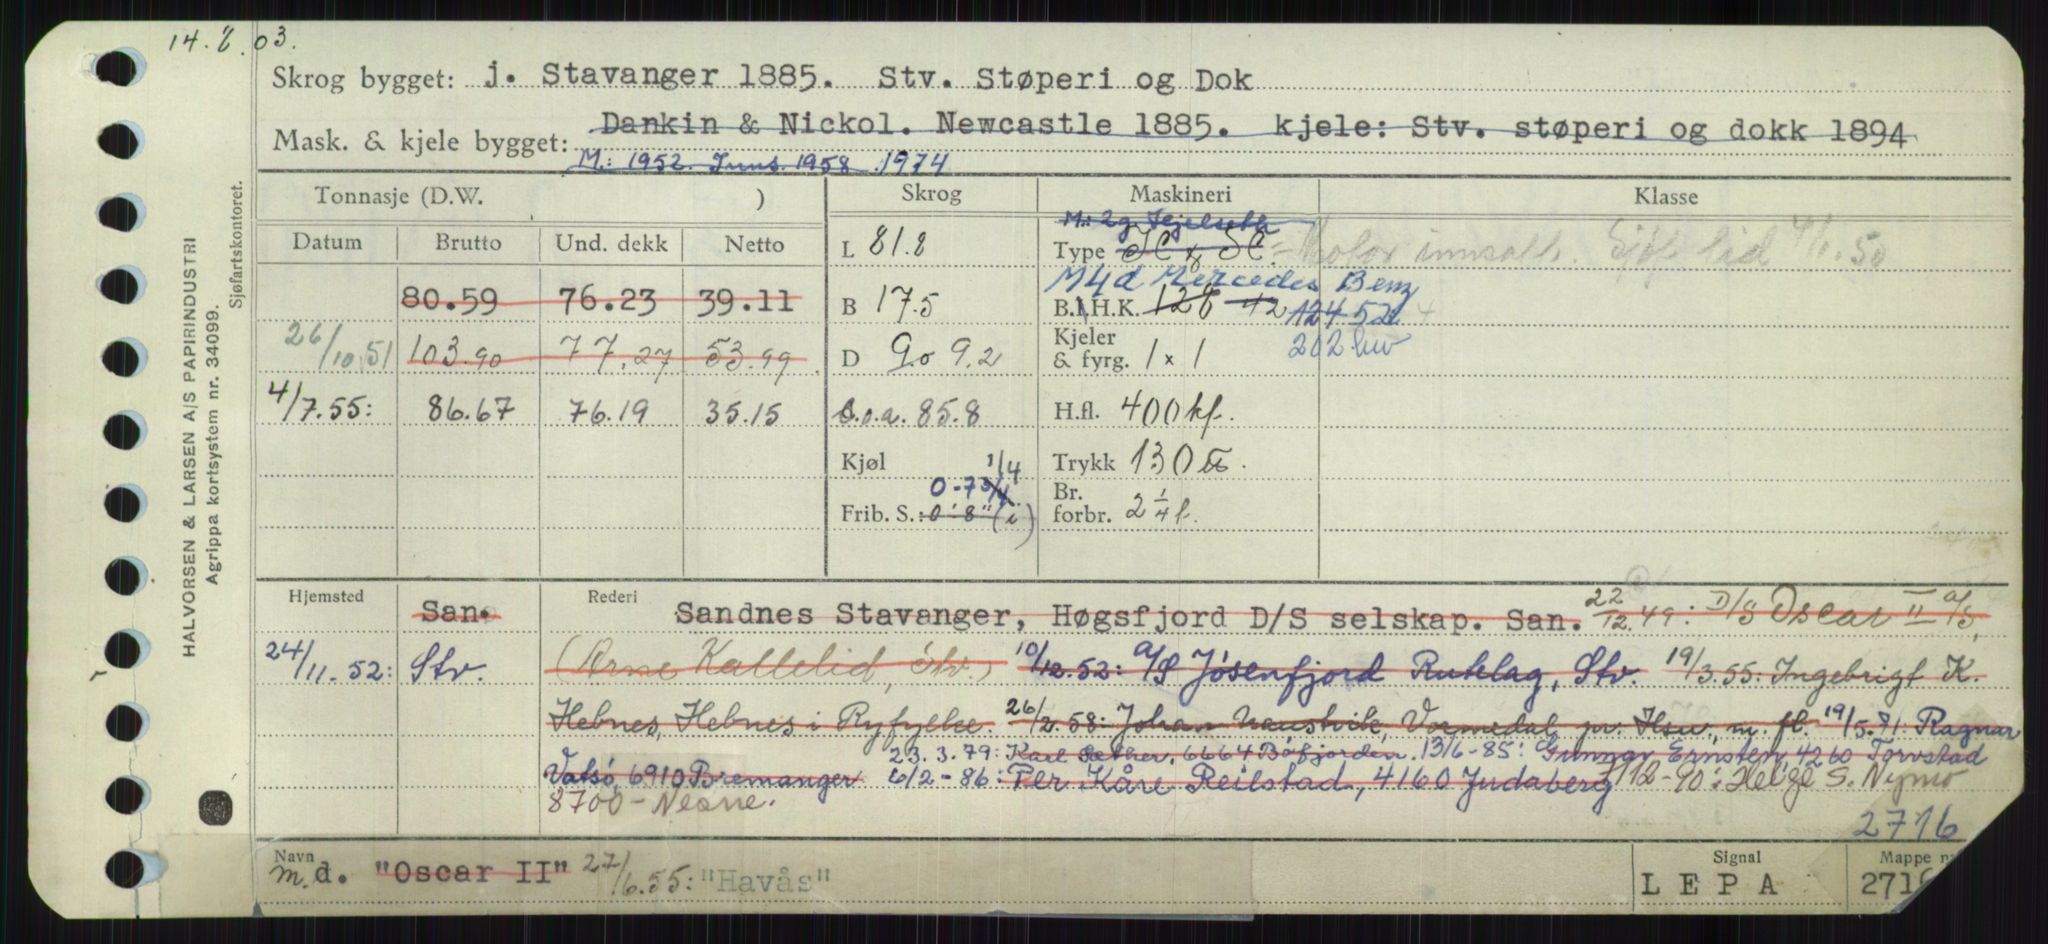 14. 2. 03.
Skrog bygget: j. Stavanger 1885. Stv. Støperi og Dok
Mask. & kjele bygget: Dankin & Nickol. Newcastle 1885. kjele: Stv. støperi og dokk 1894
M: 1952. Inns. 1958 1974
Tonnasje (D.W. ) Skrog Maskineri Klasse
Datum Brutto Und. dekk Netto
M: 2g.
L 81.8 Type
M4d Mercedes Benz
80.59 76.23 39.11 B 17.5 B.I.H.K. 128 42 124 52
202 hw
26/10.51 103.90 77.27 53.99 D 9.0 9.2 Kjeler & fyrg. 1 x 1
4/7.55: 86.67 76.19 35.15 L.o.a. 85.8 H.fl. 400 kf.
Kjøl 1/4 Trykk 130
0-7 3/4
Frib. S.: 0' 8" (i) Br. forbr. 2 1/4 t.
Hjemsted San. Rederi Sandnes Stavanger, Høgsfjord D/S selskap. San. 22/12.49: D/S Oscar II a/s,
24/11.52: Stv. (Arne Kallelid, Stv.) 10/12.52: A/S Jøsenfjord Rutelag, Stv. 19/3.55: Ingebrigt K.
Hebnes, Hebnes i Ryfylke. 26/2.58: Johan Naustvik, Vormedal pr. Hsu., m. fl. 19/5.71: Ragnar
23.3.79: Karl Sæther, 6664 Bøfjorden. 13/6-85: Gunnar Ernsten, 4260 Torvstad
Vatsø, 6910 Bremanger 6/2-86: Per Kåre Reilstad, 4160 Judaberg /12-90: Helge S. Nymo
8700 - Nesna.
2716
HALVORSEN & LARSEN A/S PAPIRINDUSTRI
Agrippa kortsystem nr. 34099.
Sjøfartskontoret.
Navn Signal Mappe
m.d. "Oscar II" 27/6.55: "Havås" LEPA 2716